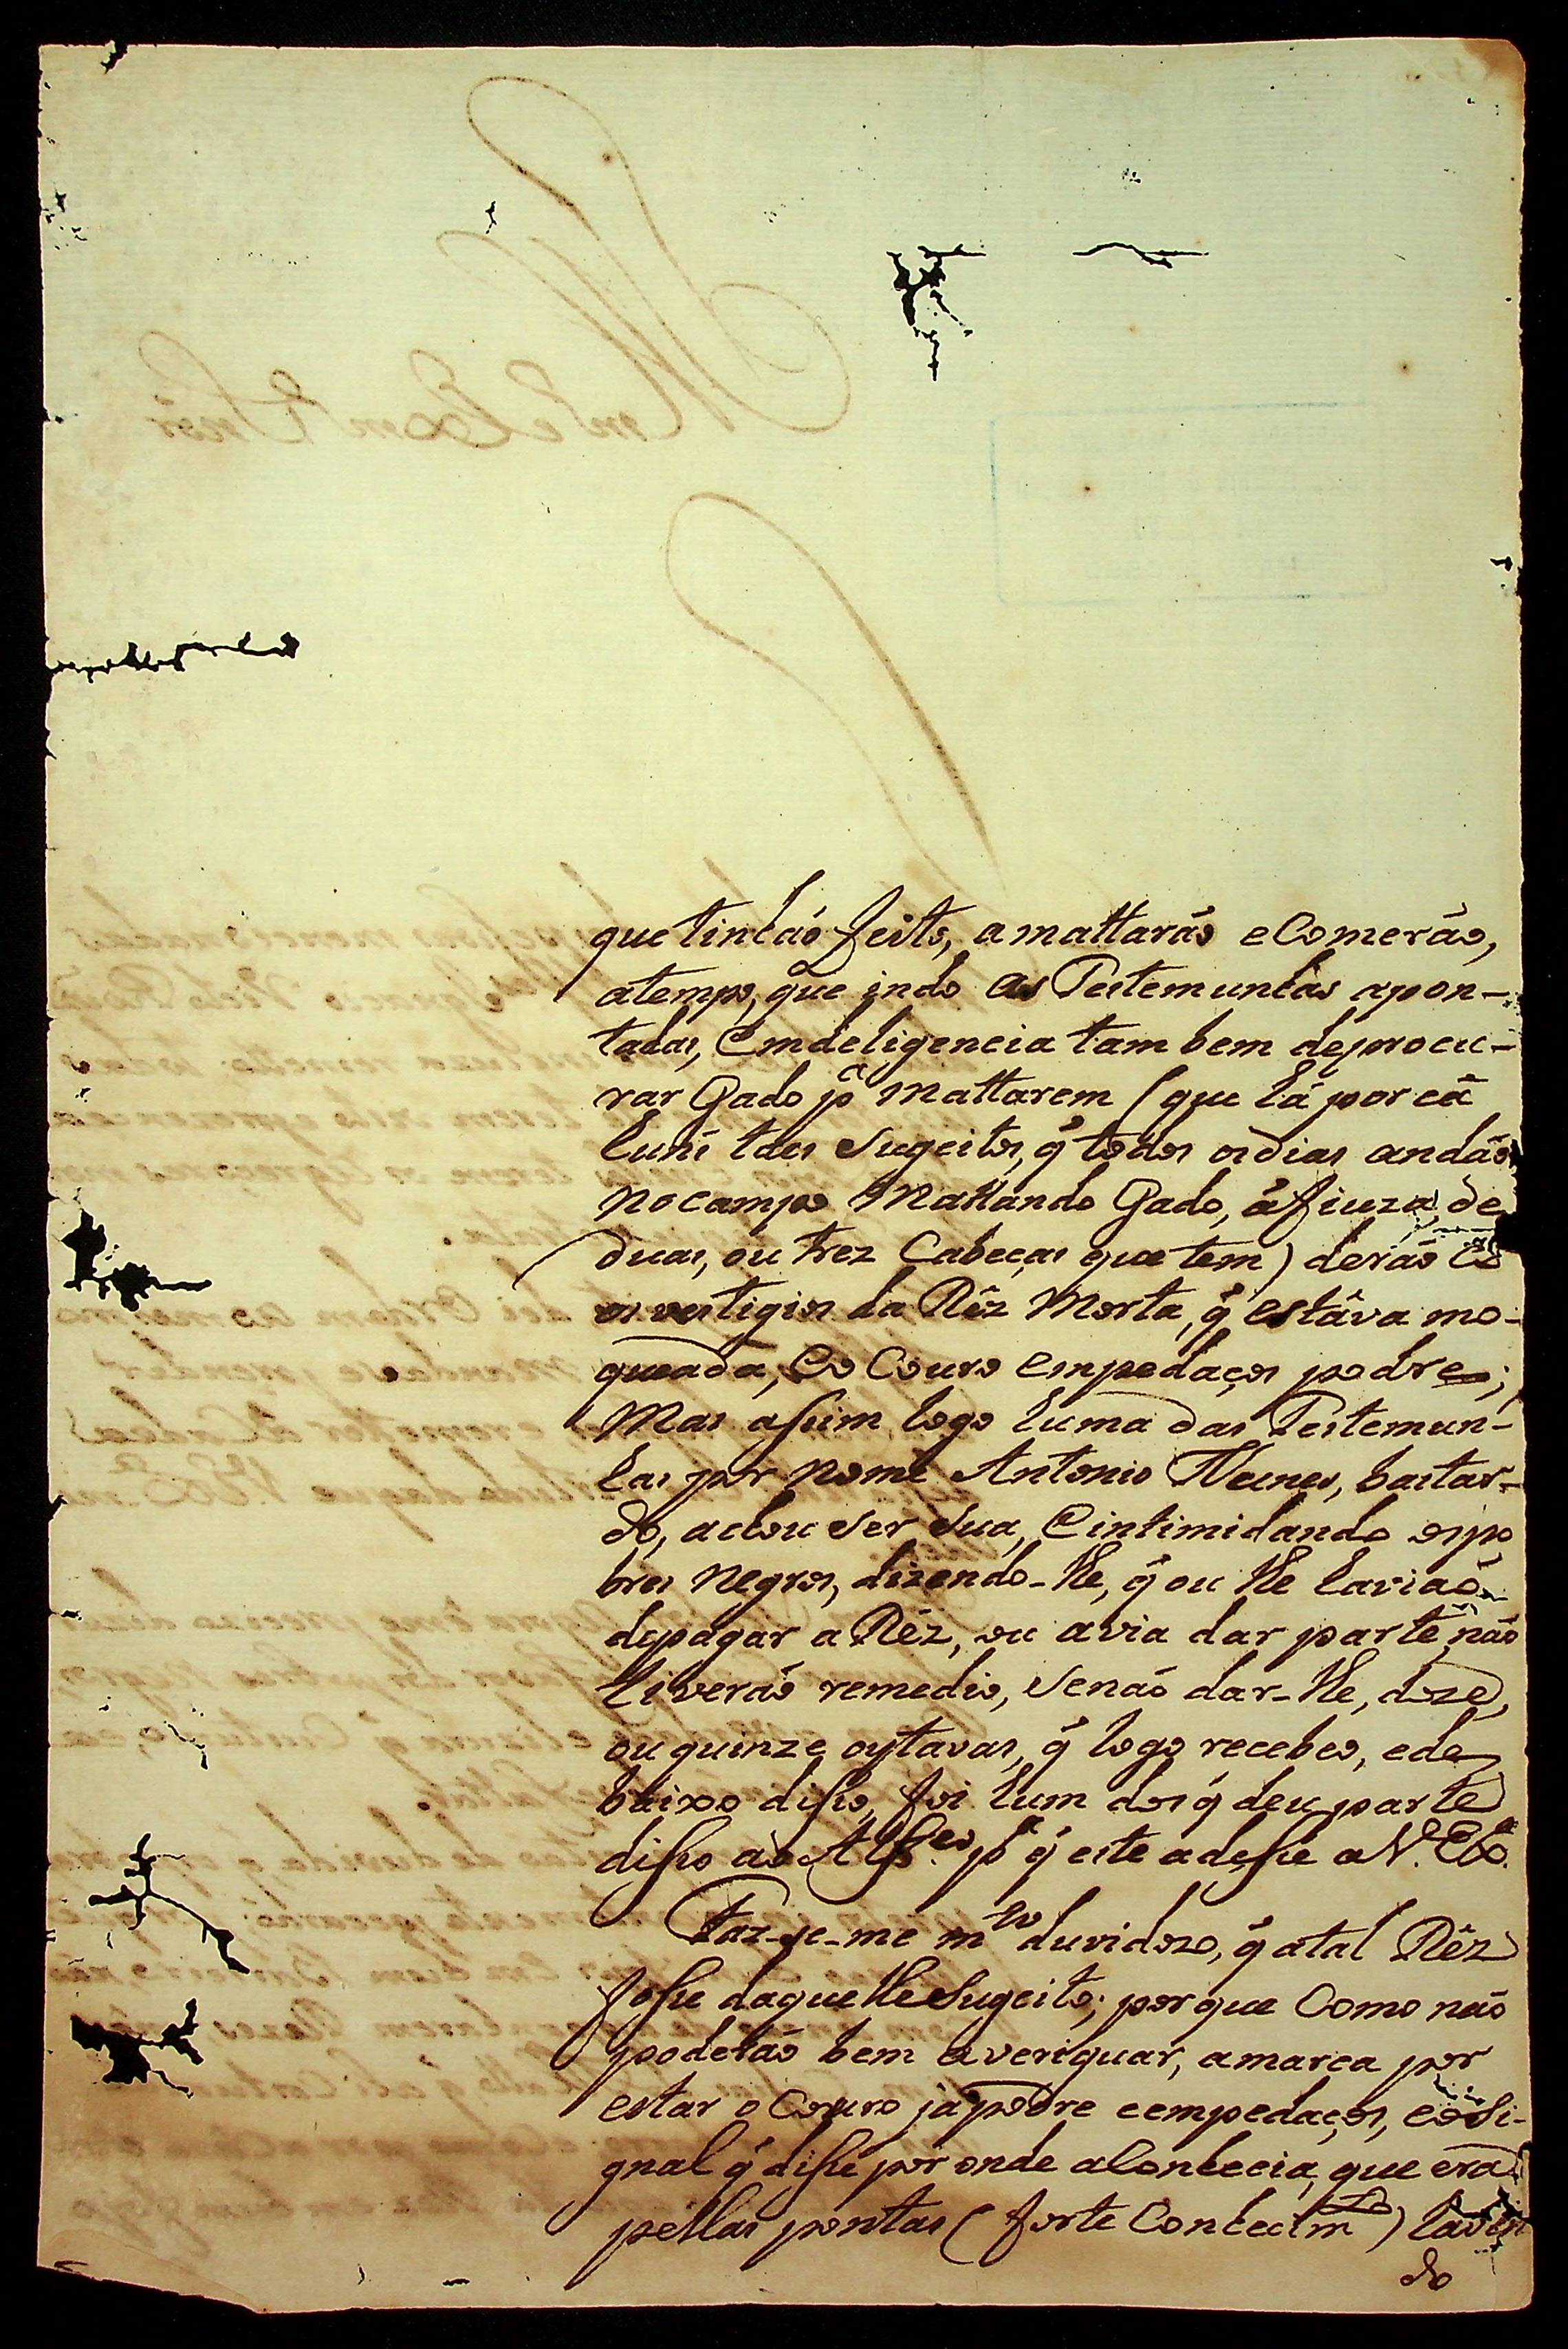 que tinhaõ feito, a mattaraõ e Comeraõ,
a tempo, que indo as Testemunhas apon-
tadas, Em deligencia tam bem de procu-
rar Gado pª Mattarem (que há por cá
huns tais Sugeitos, q̃ todos os dias andaõ
no campo Mattando Gado, á fiuza de
duas, ou trez Cabeças que tem) deraõ Cõ
os vestigios da Rêz Morta, q̃ estáva mo-
queada, Eo Couro em pedaços podre;
Mas assim logo huma das Testemun-
has por nome Antonio Nunes, bastar-
do, achou ser Sua, E intimidando os po
bres Negros, dizendo-lhe, q̃ ou lhe haviaõ
de pagar a Rêz, ou avia dar parte, naõ
tiveraõ remedio, Senaõ dar-lhe, doze,
ou quinze oytavas, q̃ logo recebeo, e de
baixo disso, foi hum dos q̃ deu parte
disso ao Alfˢ.ᵉˢ pª q̃ este a desse a V. Exª.
Faz-se-me mᵗᵒ duvidozo, q̃ a tal Rêz
fosse daquelle Sugeito; por que Como naõ
poderaõ bem averiguar, a marca por
estar o Couro já podre e em pedaços, e o Si-
gnal q̃ disse por onde a Conhecia, que era
pellas pontas (forte Conhecimᵗᵒ) haven
do